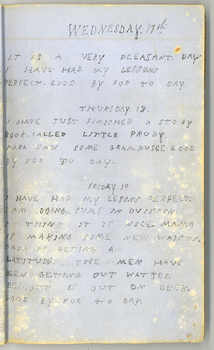 WEDNESDAY, 17th
IT IS A VERY PLEASANT DAY
I HAVE HAD MY LESSONS
PERFECT. GOOD BY FOR TO DAY.
THURSDAY 18.
I HAVE JUST FINISHED A STORY
BOOK CALLED LITTLE PRUDY.
PAPA SAW SOME GRAMPUSES GOOD
BY FOR TO DAY.
FRIDAY 19
I HAVE HAD MY LESONS PERFECT.
I AM DOING SUMS IN DIVISION.
I THINK IT IS NICE. MAMA
IS MAKING SOME NEW WAISTS.
PAPA IS GETING A
LATITUDE. THE MEN HAVE
BEEN GETING OUT WATTER
IS OUT ON DECK.
GOOD BY FOR TO DAY.